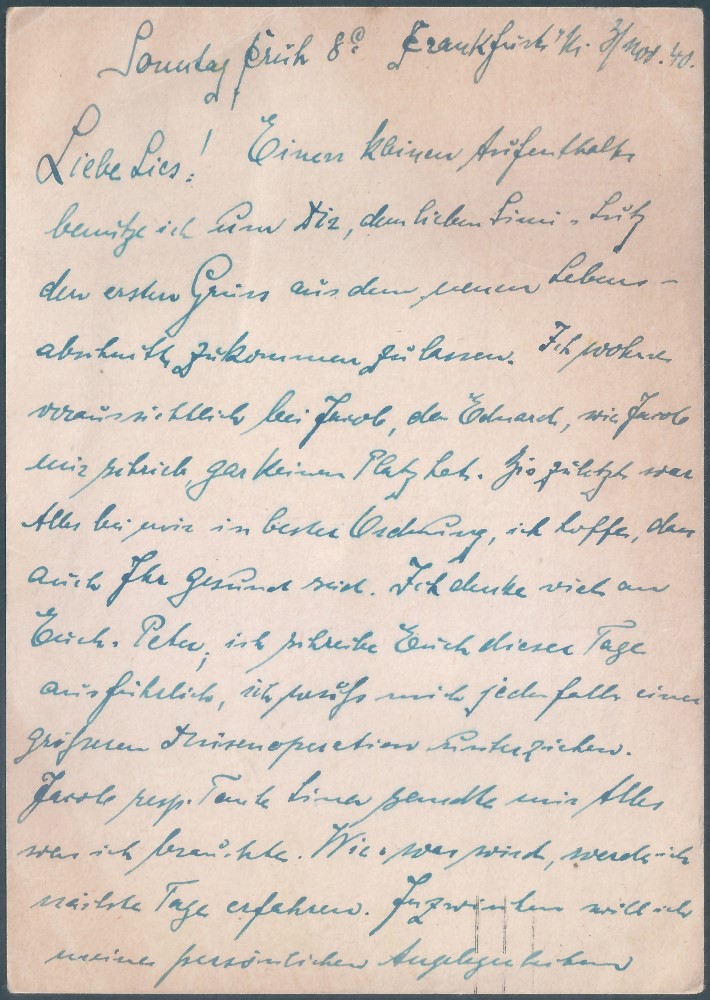 Sonntag früh 8° Frankfurt/M. 3/Nov. 40.
Liebe Lies! Einen kleinen Aufenthalt
benütze ich um Dir, dem lieben Simi u Lutz
den ersten Gruss aus dem neuen Lebens-
abschnitt zukommen zu lassen. Ich wohne
voraussichtlich bei Jacob, da Eduard, wie Jacob
mir schrieb, gar keinen Platz hat. Bis zuletzt war
Alles bei mir in bester Ordnung, ich hoffe, dass
auch Ihr gesund seid. Ich denke viel an
Euch. Peter, ich schreibe Euch dieser Tage
ausführlich, ich muss mich jedenfalls einer
grösseren Drüsenoperation unterziehen.
Jacob resp. Tante Lina sandte mir Alles
was ich brauchte. Wie u was wird, werde ich
nächste Tage erfahren. Inzwischen will ich
meine persönlichen Angelegenheiten